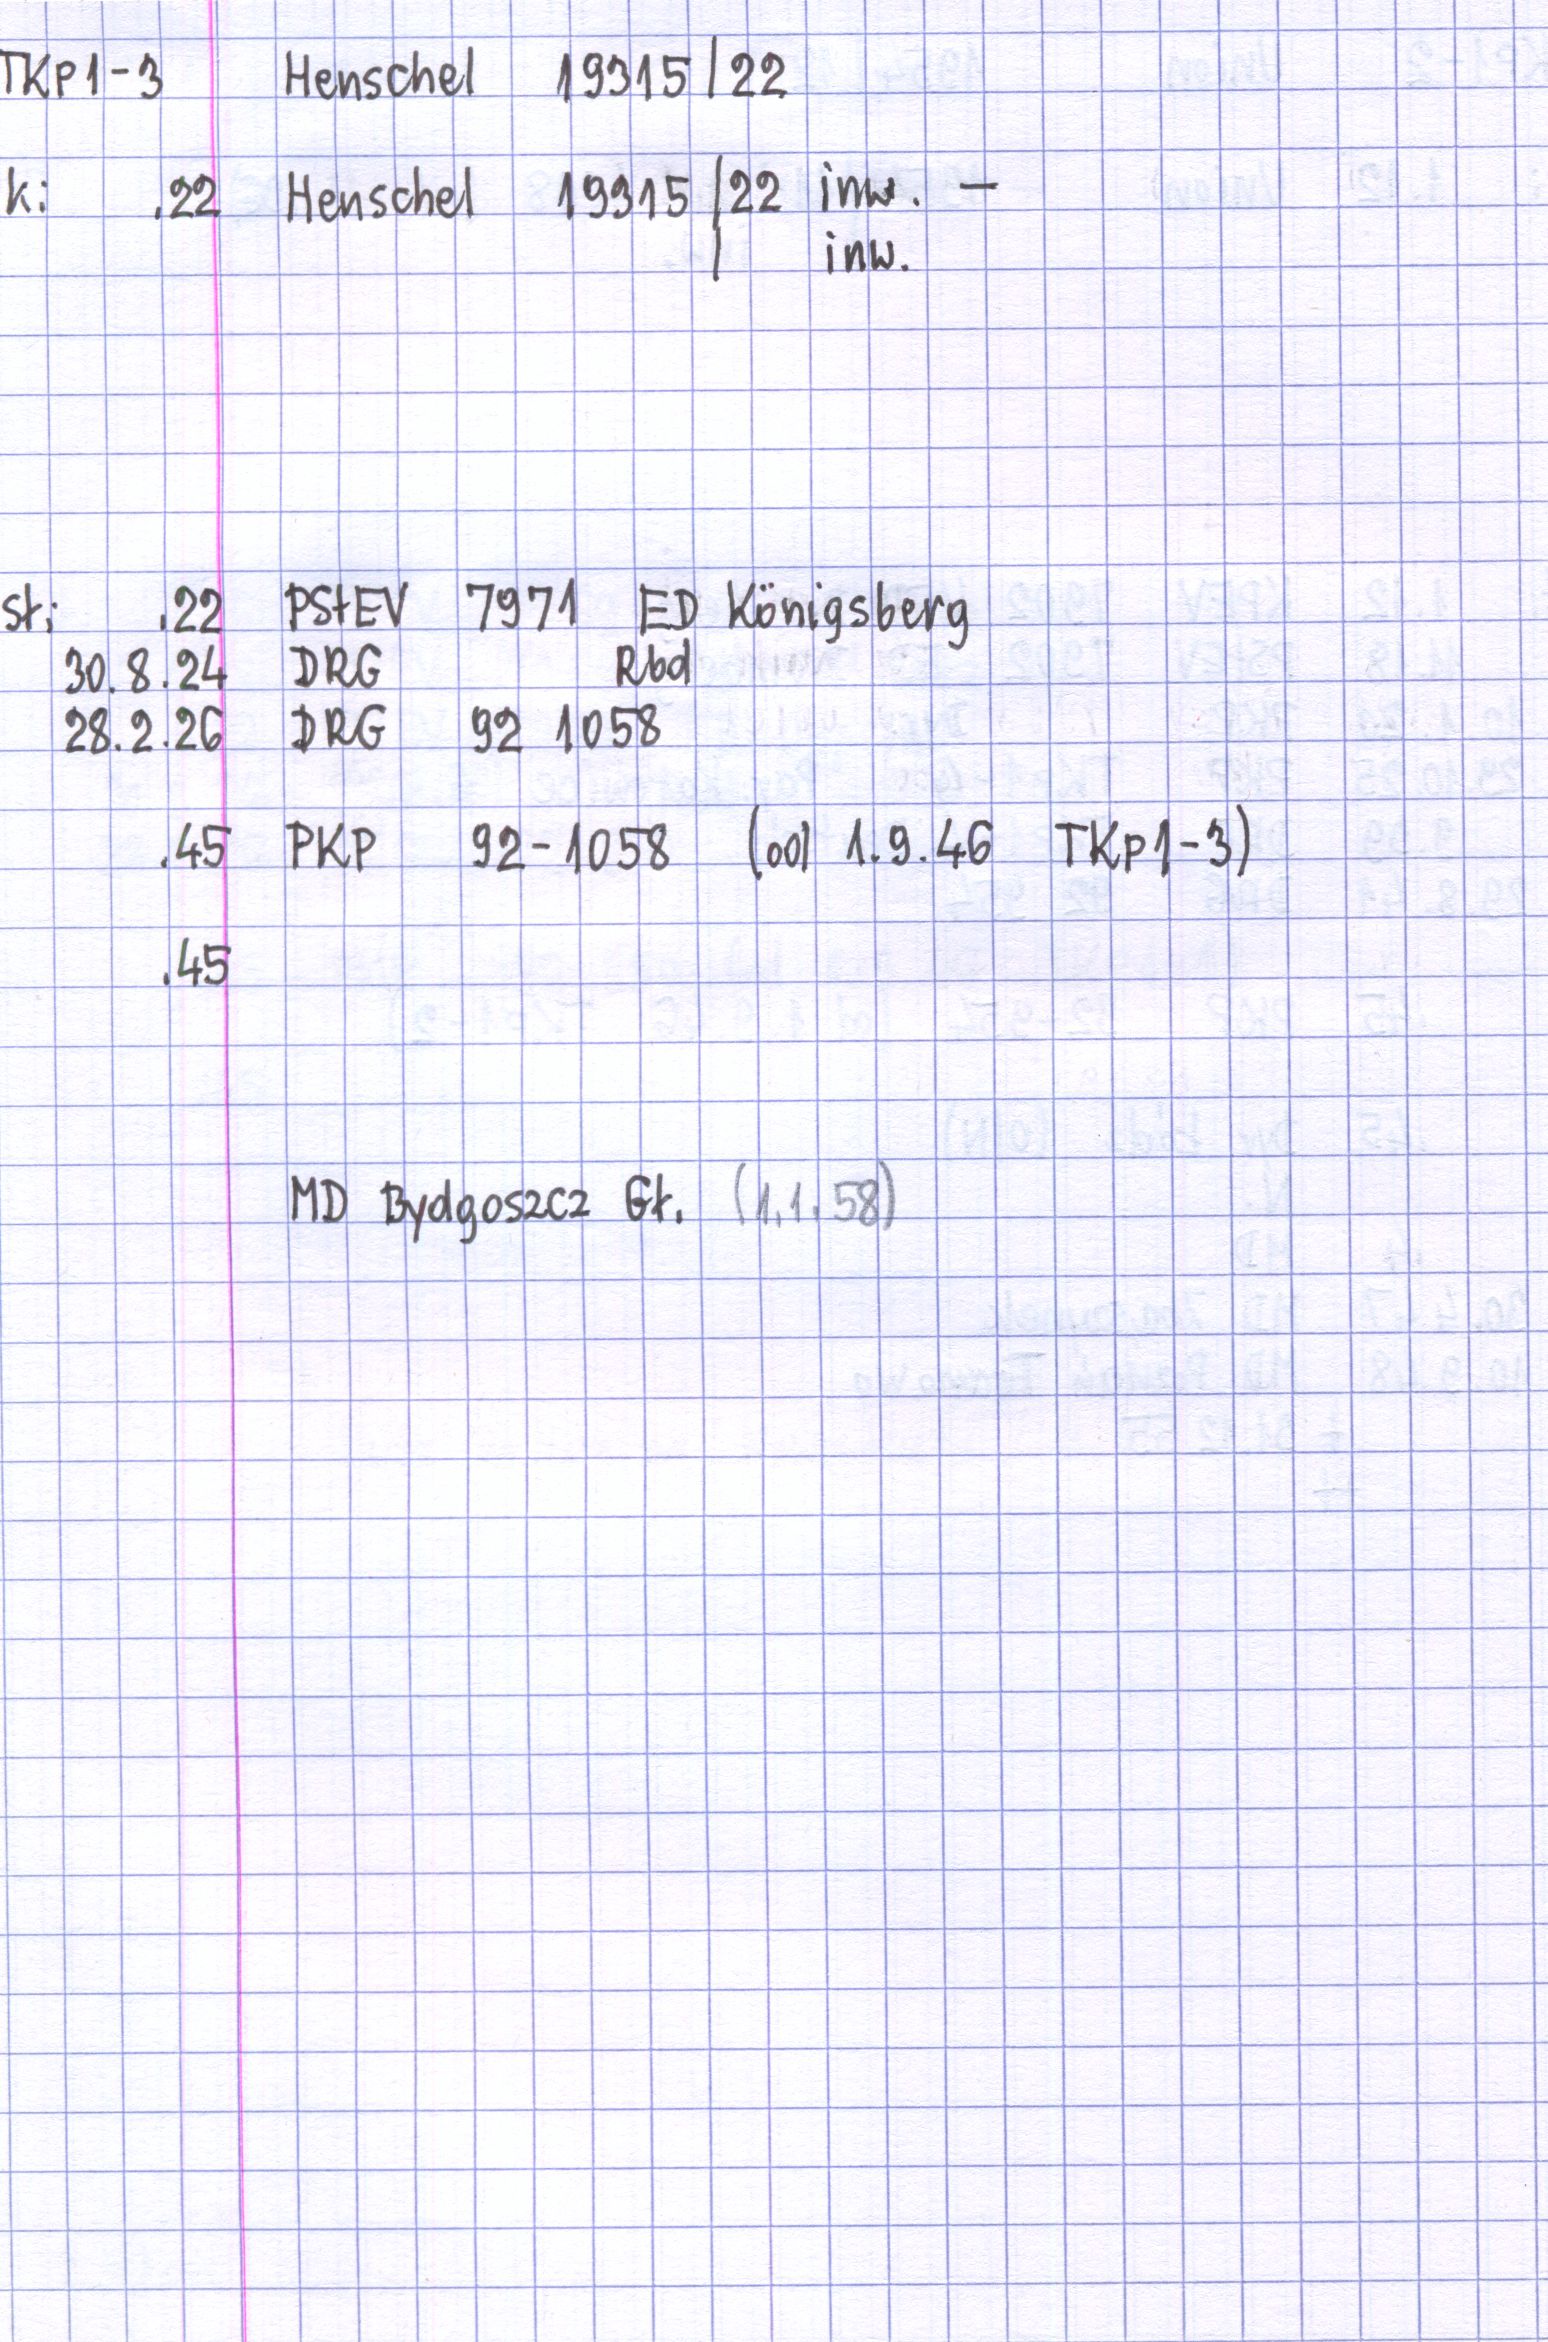 TKp1-3 Henschel 19315/22
k: .22 Henschel 19315/22 inw. –
/ inw.
st: .22 PStEV 7971 ED Königsberg
30.8.24 DRG Rbd
28.2.26 DRG 92 1058
.45 PKP 92-1058 (od 1.9.46 TKp1-3)
.45
MD Bydgoszcz Gł. (1.1.58)